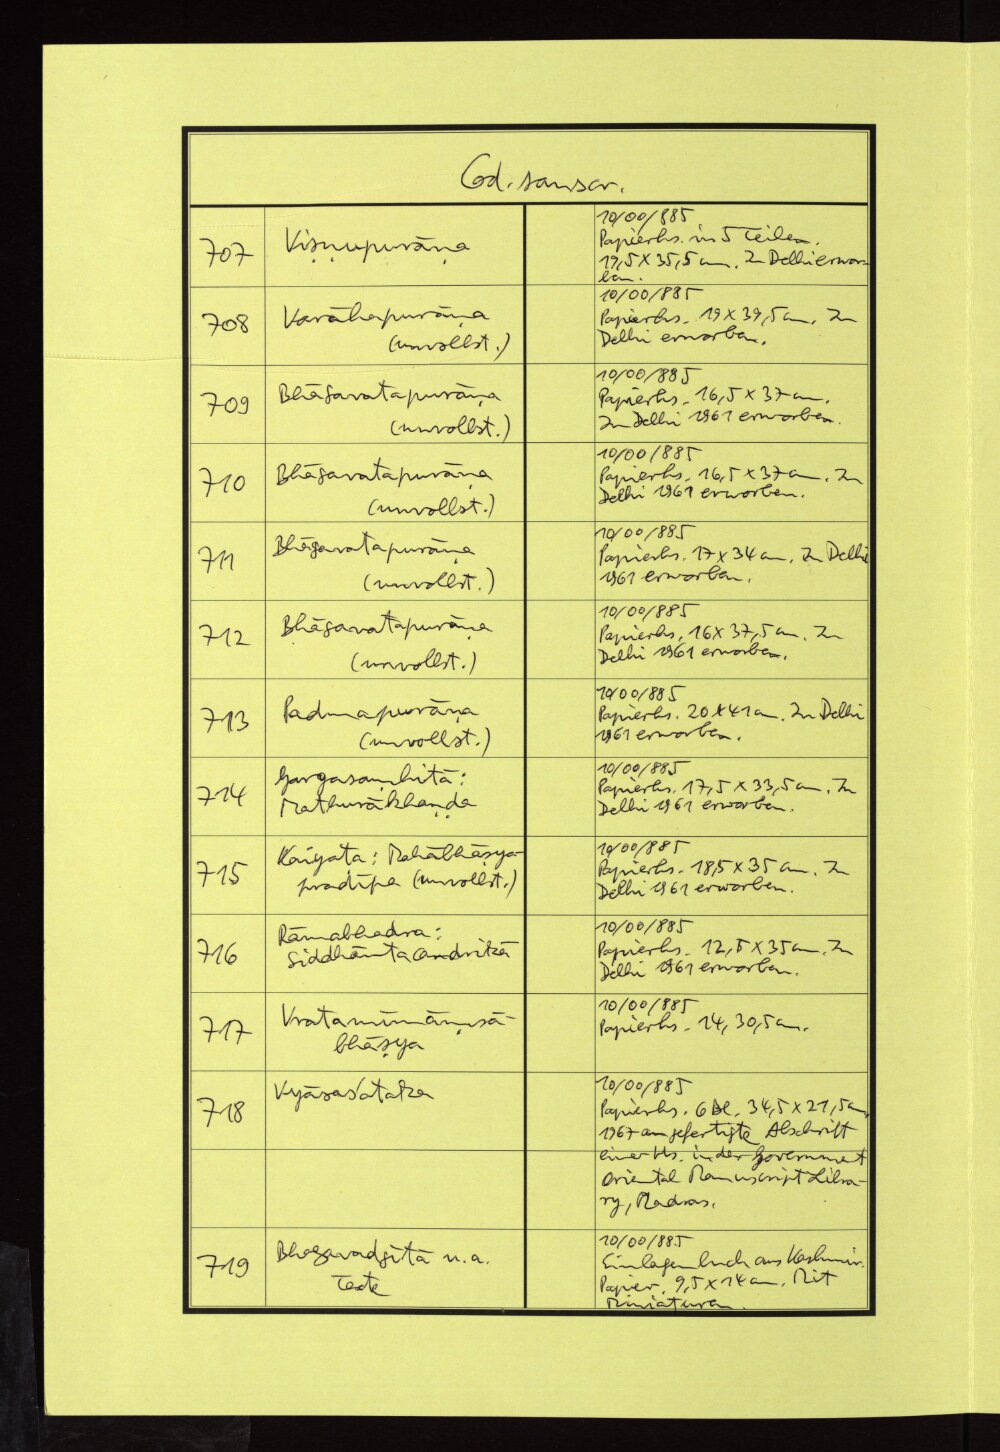 Cod. sanscr.
707 Viṣṇupurāṇa
10/00/885
Papierhs. in 5 Teilen.
19,5 X 35,5 cm. In Delhi erwor-
ben.
708 Varāhapurāṇa
(unvollst.)
10/00/885
Papierhs. 19 X 39,5 cm. In
Delhi erworben.
709 Bhāgavatapurāṇa
(unvollst.)
10/00/885
Papierhs. 16,5 X 37 cm.
In Delhi 1961 erworben.
710 Bhāgavatapurāṇa
(unvollst.)
10/00/885
Papierhs. 16,5 X 37 cm. In
Delhi 1961 erworben.
711 Bhāgavatapurāṇa
(unvollst.)
10/00/885
Papierhs. 17 X 34 cm. In Delhi
1961 erworben.
712 Bhāgavatapurāṇa
(unvollst.)
10/00/885
Papierhs. 16 X 37,5 cm. In
Delhi 1961 erworben.
713 Padmapurāṇa
(unvollst.)
10/00/885
Papierhs. 20 X 41 cm. In Delhi
1961 erworben.
714 Gargasaṃhitā:
Mathurākhaṇḍa
10/00/885
Papierhs. 17,5 X 33,5 cm. In
Delhi 1961 erworben.
715 Kaiyaṭa: Mahābhāṣya-
pradīpa (unvollst.)
10/00/885
Papierhs. 18,5 X 35 cm. In
Delhi 1961 erworben.
716 Rāmabhadra:
Siddhāntacandrikā
10/00/885
Papierhs. 12,5 X 35 cm. In
Delhi 1961 erworben.
717 Vratamīmāṃsā-
bhāṣya
10/00/885
Papierhs. 14, 30,5 cm.
718 Vyāsaśataka
10/00/885
Papierhs. 6 Bl. 34,5 X 21,5 cm
1967 angefertigte Abschrift
einer Hs. in der Government
Oriental Manuscript Libra-
ry, Madras.
719 Bhagavadgītā u.a.
Texte
10/00/885
Einlagenbuch aus Kashmir.
Papier. 9,5 X 14 cm. Mit
Miniaturen.